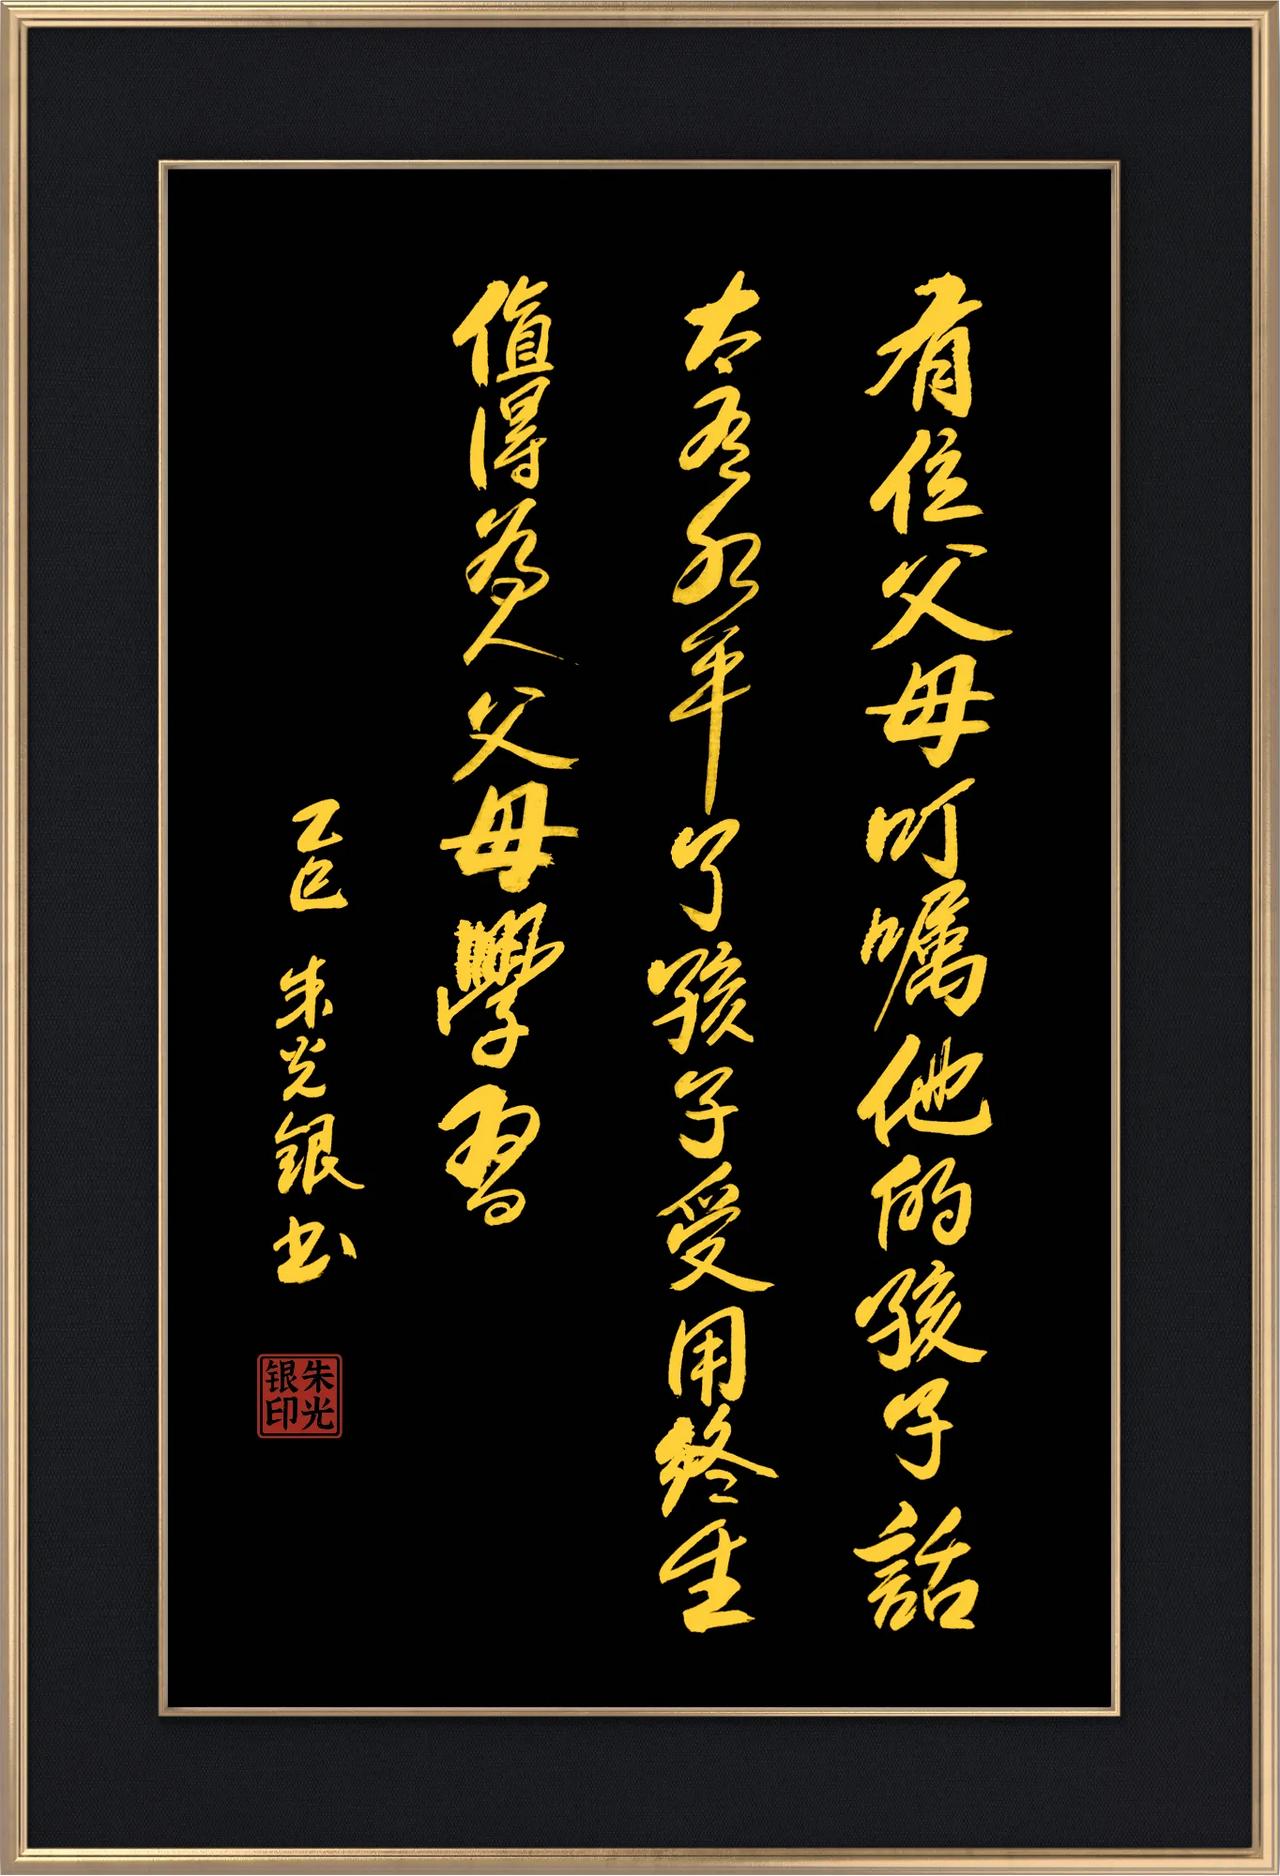 有位父母叮囑他的孩子話
太有水平了孩子受用終生
值得為人父母學習
乙巳 朱光銀书
朱光
银印